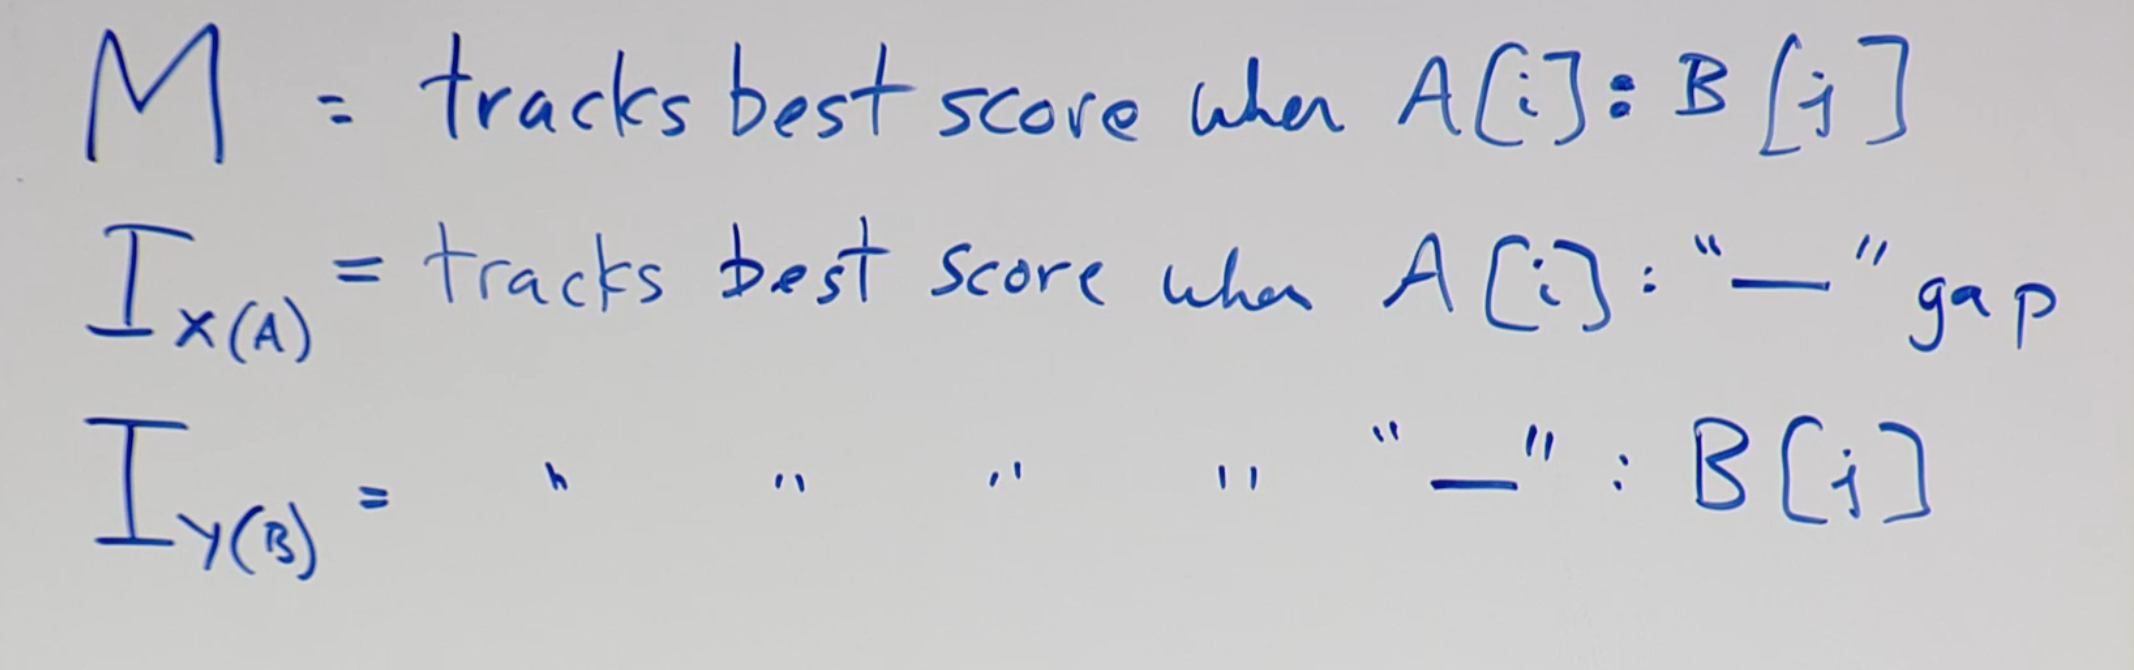 M = tracks best score when A[i] : B[j]
I x(A) = tracks best score when A[i] : "—" gap
I y(B) = " " " " "—" : B[j]